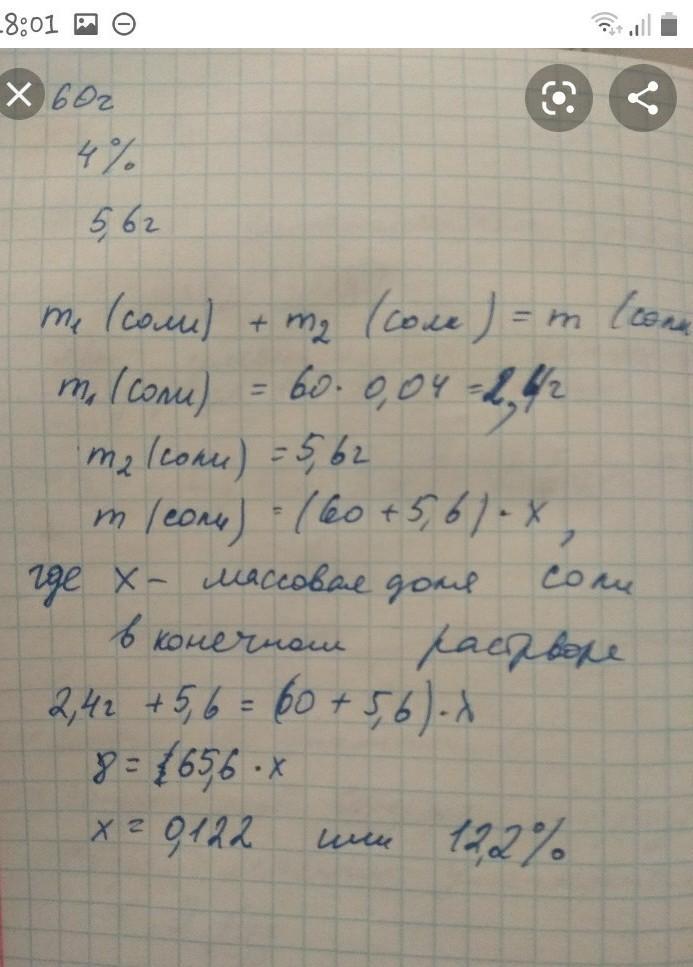 18:01
60г
4%
5,6г
m₁ (соли) + m₂ (соли) = m (соли
m₁ (соли) = 60 · 0,04 = 2,4г
m₂ (соли) = 5,6г
m (соли) = (60 + 5,6) · x,
где x - массовая доля соли
в конечном растворе
2,4г + 5,6 = (60 + 5,6) · x
8 = 65,6 · x
x = 0,122 или 12,2%